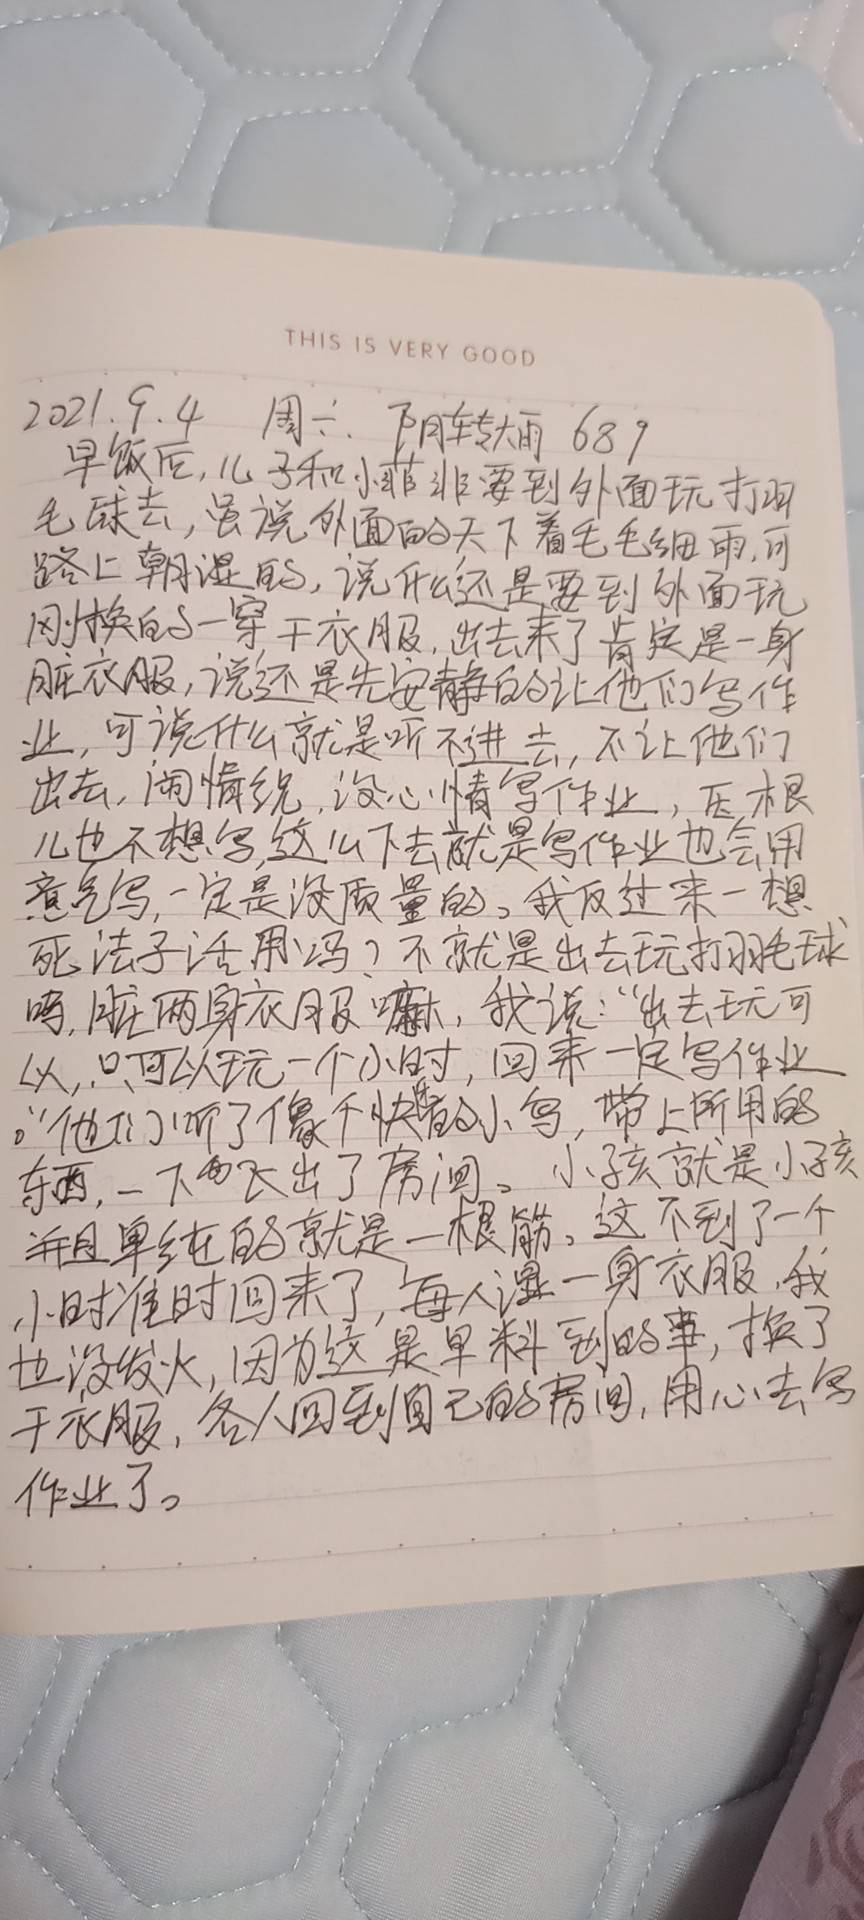 THIS IS VERY GOOD
2021.9.4 周六. 阴转大雨 689
早饭后,儿子和小菲非要到外面玩打羽
毛球去,虽说外面的天下着毛毛细雨,可
路上朝湿的,说什么还是要到外面玩
刚换的一穿干衣服,出去来了肯定是一身
脏衣服,说还是先安静的让他们写作
业,可说什么就是听不进去,不让他们
出去,闹情绪,没心情写作业,压根
儿也不想写,这么下去就是写作业也会用
意气写,一定是没质量的。我反过来一想
死法子活用吗?不就是出去玩打羽毛球
吗,脏两身衣服嘛,我说:“出去玩可
以,只可以玩一个小时,回来一定写作业
。”他们听了像个快乐的小鸟,带上所用的
东西,一下飞出了房间。小孩就是小孩
并且单纯的就是一根筋。这不到了一个
小时准时回来了,每人湿一身衣服,我
也没发火,因为这是早料到的事,换了
干衣服,各人回到自己的房间,用心去写
作业了。